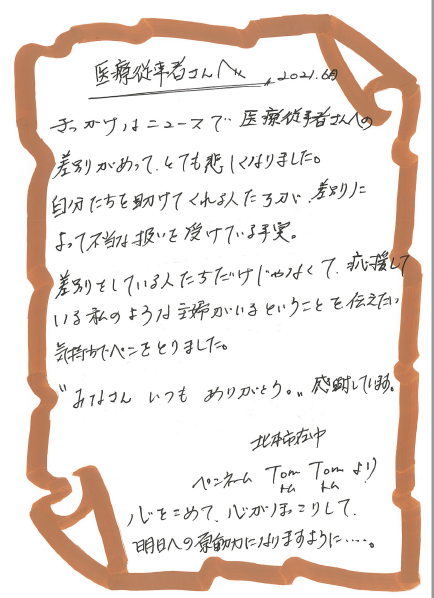 医療従事者さんへ
2021.6月
きっかけはニュースで 医療従事者さんへの
差別があって、とても悲しくなりました。
自分たちを助けてくれる人たちが、差別に
よって不当な扱いを受けている事実。
差別をしている人たちだけじゃなくて、応援して
いる私のような主婦がいるということを伝えたい
気持ちでペンをとりました。
〝みなさん いつも ありがとう。〟感謝しています。
北本市在中
ペンネーム Tom Tom より
トム トム
心をこめて、心がほっこりして、
明日への原動力になりますように……。